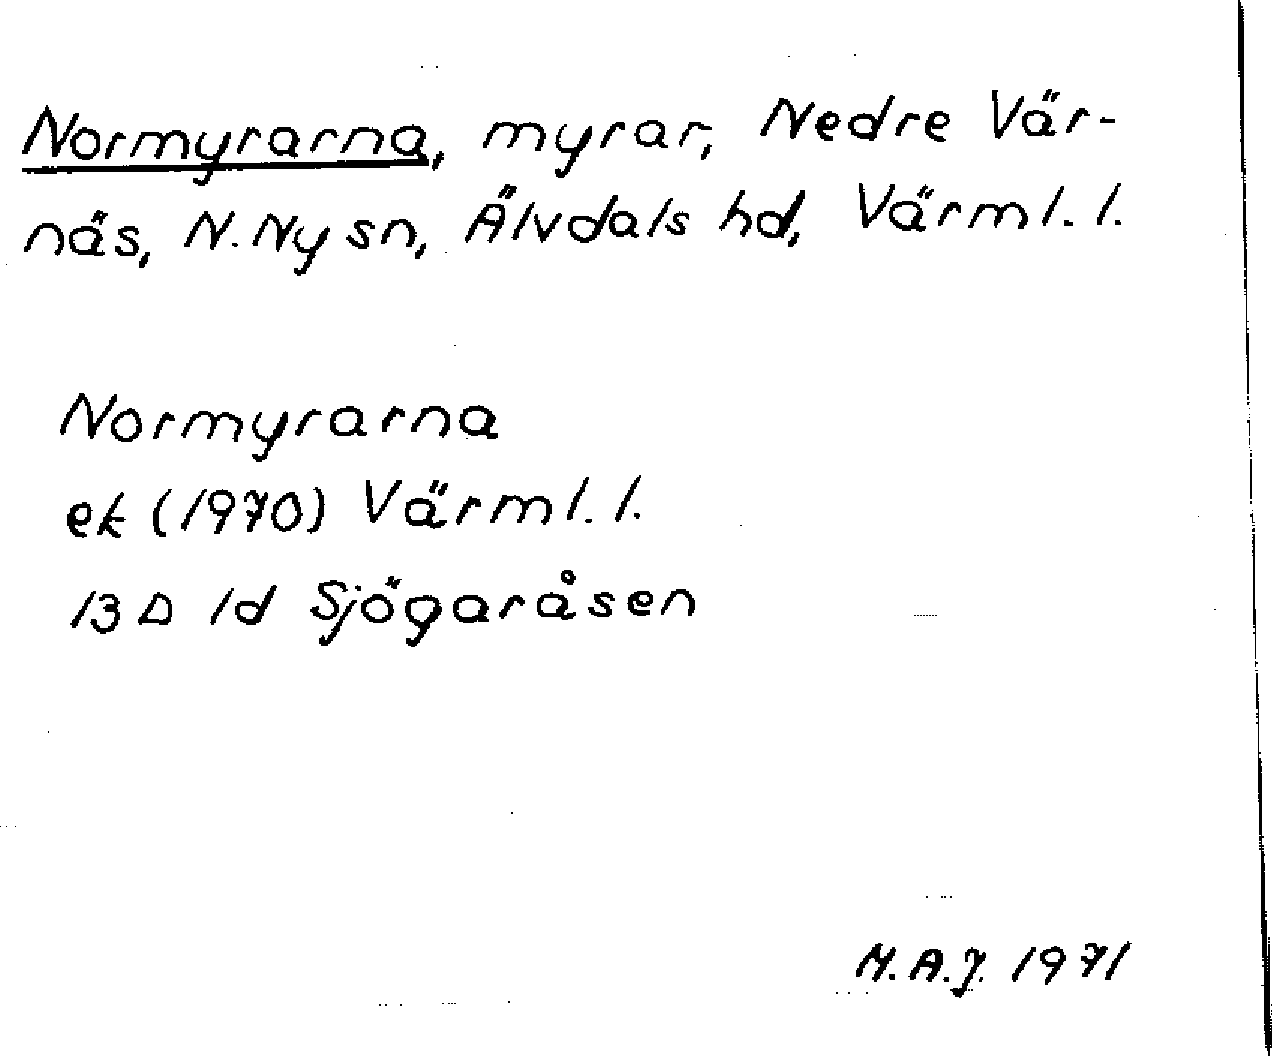 Normyrarna, myrar, Nedre Vär-
näs, N. Ny sn, Älvdals hd, Värml. l.
Normyrarna
ek (1970) Värml. l.
13 D 1d Sjögaråsen
M.A.J. 1971